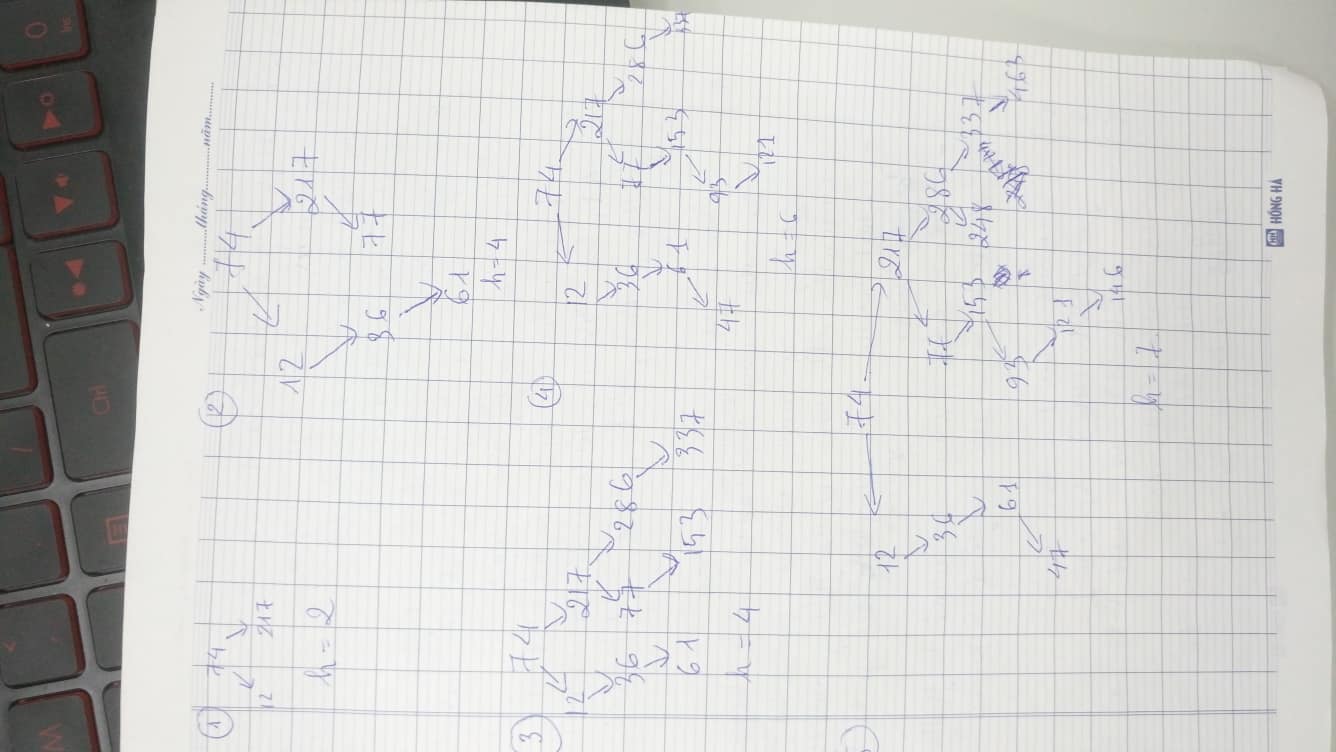 M
Ctrl
0
Ins
Ngày ..........tháng............năm...........
① 74
12 217
h = 2
② 74
12 217
36 77
61
h=4
③ 74
12 217
36 77 286
61 153 337
h = 4
④ 74
12 217
36 77 286
61 153 337
47 93
121
h = 6
74
12 217
36 77 286
61 153 248 337
47 93 463
121
146
h = 7
HH HỒNG HÀ